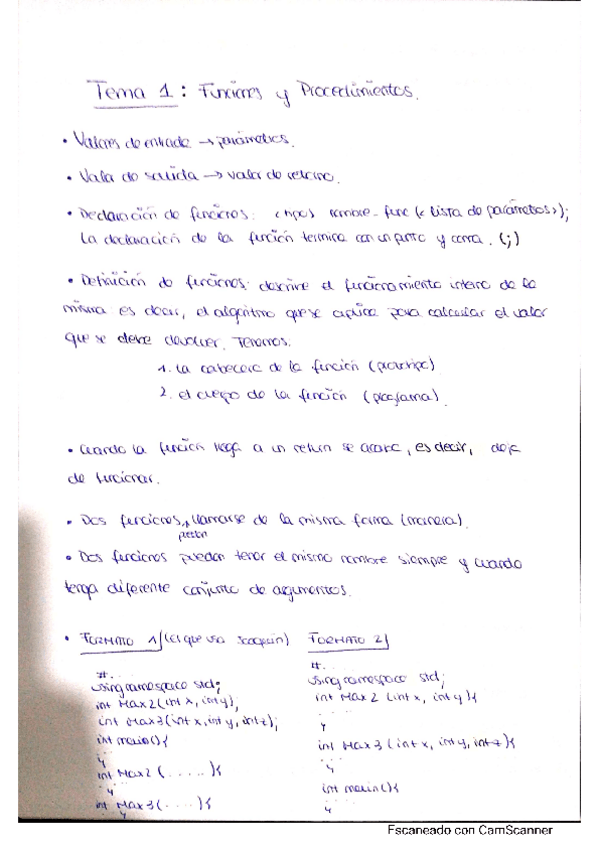 Tema 1: Funciones y Procedimientos.
• Valores de entrada → parámetros.
• Valor de salida → valor de retorno.
• Declaración de funciones: <tipo> nombre-func (<lista de parámetros>);
La declaración de la función termina con un punto y coma. (;)
• Definición de funciones: describe el funcionamiento interno de la
misma es decir, el algoritmo que se aplica para calcular el valor
que se debe devolver. Tenemos:
1. La cabecera de la función (prototipo)
2. el cuerpo de la función (programa)
• Cuando la función llega a un return se acaba, es decir, deja
de funcionar.
• Dos funciones pueden llamarse de la misma forma (manera).
• Dos funciones pueden tener el mismo nombre siempre y cuando
tenga diferente conjunto de argumentos.
• FORMATO 1 (el que usa Joaquín) FORMATO 2
#. . . .
using namespace std;
int Max2(int x, int y);
int Max3(int x, int y, int z);
int main(){
. . .
}
int Max2 (. . . . .){
}
int Max3(. . . .){
}
#. . . .
using namespace std;
int Max2 (int x, int y){
. . .
}
int Max3 (int x, int y, int z){
. . .
}
int main(){
}
Escaneado con CamScanner